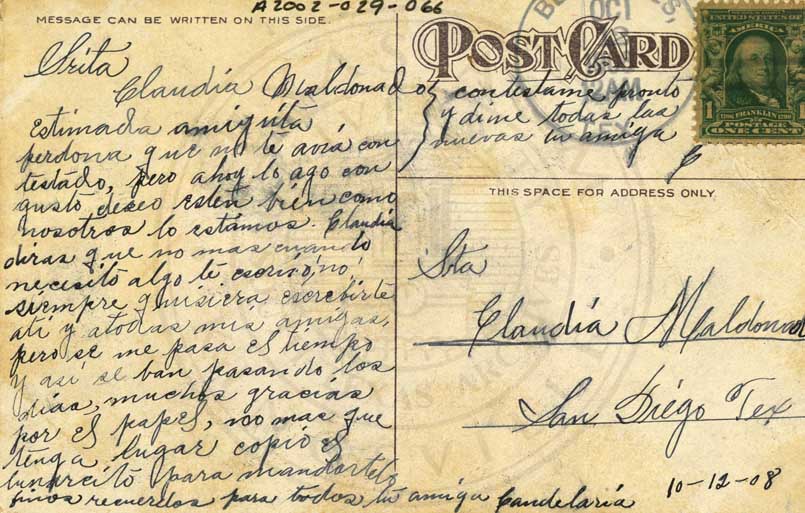 A2002-029-066
MESSAGE CAN BE WRITTEN ON THIS SIDE.
Srita
Claudia Maldonado
Estimada amiguita
perdona que no te avía con
testado, pero ahoy lo ago con
gusto deseo esten bién como
nosotros lo estámos. Claudia
diras que no mas cuando
necesitó algo te escrivó, no,
siempre quisiera escrebirte
ati y atodas mis amigas,
pero se me pasa el tiempo
y así se ban pasando los
días, muchos gracias
por el papel, noo mas que
tenga lugar copió el
para mandartelo
finos recuerdos para todos tu amiga Candelaria
POST CARD
contestame pronto
y dime todas las
nuevas tu amiga
C
OCT
AM
UNITED STATES OF
AMERICA
1706 FRANKLIN 1790
POSTAGE
1 ONE CENT 1
THIS SPACE FOR ADDRESS ONLY.
Sta
Claudia Maldonado
San Diégo Tex
10-12-08